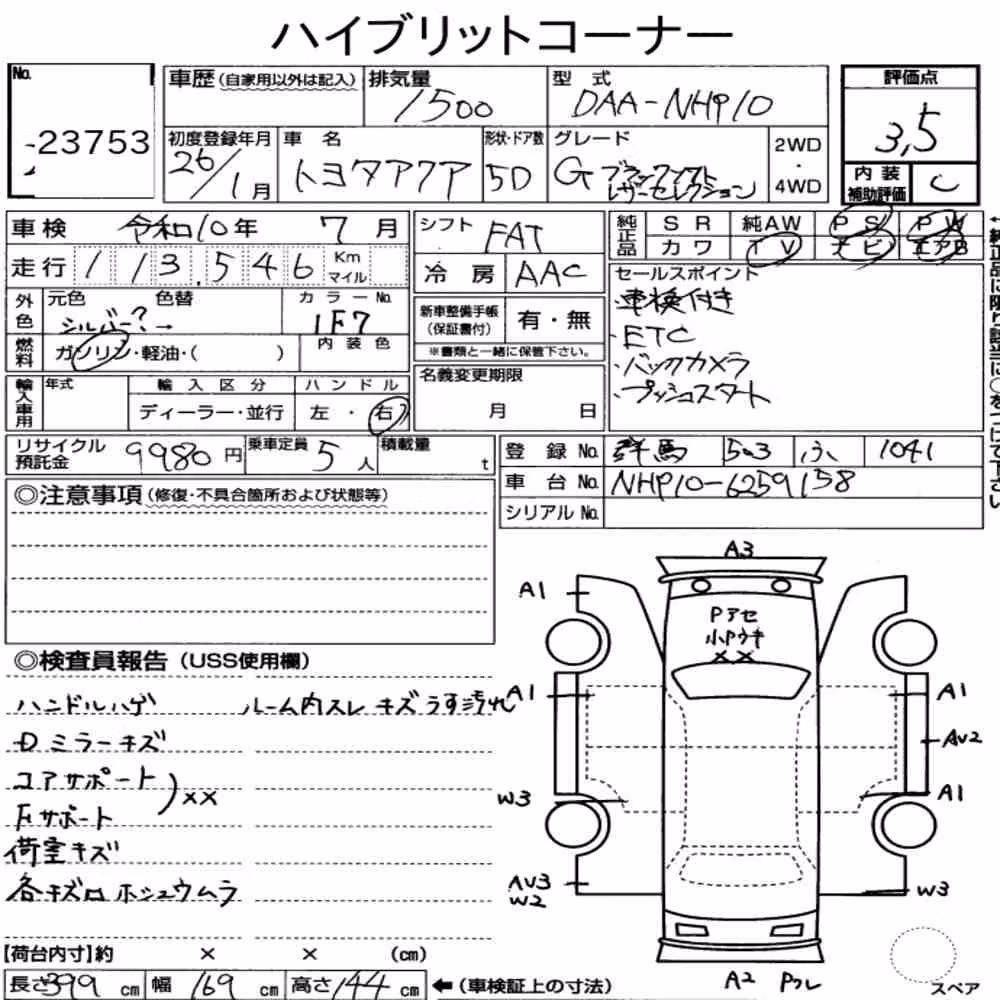 ハイブリットコーナー
No.
23753
車歴(自家用以外は記入)
排気量
1500
型式
DAA-NHP10
評価点
3,5
初度登録年月
26/1月
車名
トヨタアクア
形状・ドア数
5D
グレード
G ブラックソフトレザーセレクション
2WD
・
4WD
内装
補助評価
C
車検 令和10年 7月
シフト FAT
純正品 SR 純AW PS PW
カワ TV ナビ エアB
走行 113,546 Km
マイル
冷房 AAC
セールスポイント
・車検付き
・ETC
・バックカメラ
・プッシュスタート
外色
元色 色替
シルバー?→
カラーNo.
1F7
新車整備手帳
(保証書付)
有・無
※書類と一緒に保管下さい。
燃料
ガソリン・軽油・( )
内装色
輸入車用
年式
輸入区分
ディーラー・並行
ハンドル
左・右
名義変更期限
月 日
リサイクル
預託金
9980円
乗車定員
5人
積載量
t
登録No. 群馬 503 ふ 1041
車台No. NHP10-6259158
シリアルNo.
◎注意事項(修復・不具合箇所および状態等)
◎検査員報告(USS使用欄)
ハンドルハゲ ルーム内スレ キズ うす汚れ
Dミラーキズ
コアサポート
Frサポート
)××
荷室キズ
各キズロホシュウムラ
A3
A1
Pアセ
小Pウキ
××
A1
A1
AV2
W3
A1
AV3
W2
W3
A2 Pクレ
【荷台内寸】約 × × (cm)
長さ399cm 幅169cm 高さ144cm ←(車検証上の寸法)
スペア